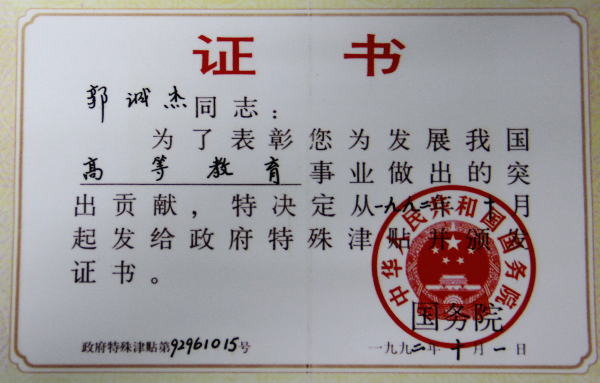 证书
郭诚杰同志：
为了表彰您为发展我国
高等教育事业做出的突
出贡献，特决定从一九九二年十月
起发给政府特殊津贴并颁发
证书。
中华人民共和国国务院
国务院
政府特殊津贴第92961015号
一九九二年十月一日